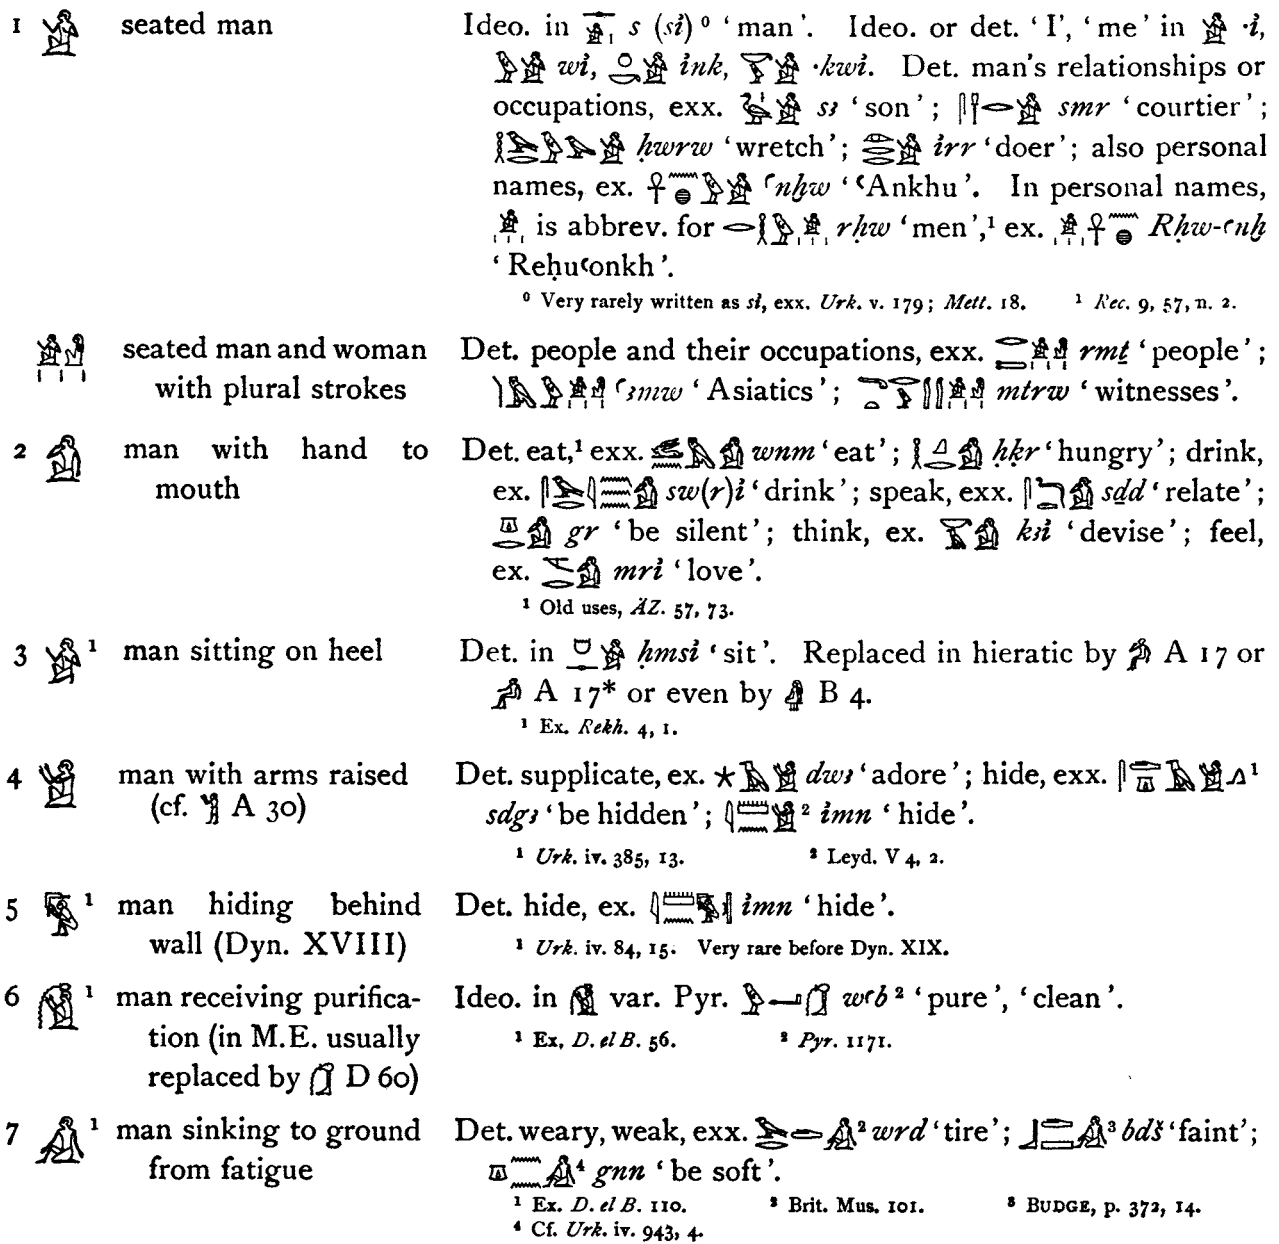 1 𓀀 seated man Ideo. in 𓊃𓀀𓏤 s (sı͗) ⁰ ‘man’. Ideo. or det. ‘I’, ‘me’ in 𓀀 ·ı͗,
𓅱𓀀 wı͗, 𓏌𓎡𓀀 ı͗nk, 𓎡𓅱𓀀 ·kwı͗. Det. man's relationships or
occupations, exx. 𓅭𓏤𓀀 sꜣ ‘son’; 𓋴𓌸𓂋𓀀 smr ‘courtier’;
𓎛𓅨𓂋𓅱𓅪𓀀 ḥwrw ‘wretch’; 𓁹𓂋𓂋𓀀 ı͗rr ‘doer’; also personal
names, ex. 𓋹𓈖𓐍𓅱𓀀 ꜥnḫw ‘ꜥAnkhu’. In personal names,
𓀀𓏥 is abbrev. for 𓂋𓎛𓅱𓀀𓏥 rḥw ‘men’,¹ ex. 𓀀𓏥𓋹𓈖𓐍 Rḥw-ꜥnḫ
‘Reḥuꜥonkh’.
⁰ Very rarely written as sı͗, exx. Urk. v. 179; Mett. 18. ¹ Rec. 9, 57, n. 2.
𓀀𓁐𓏥 seated man and woman Det. people and their occupations, exx. 𓂋𓍿𓀀𓁐𓏥 rmṯ ‘people’;
with plural strokes 𓌙𓅓𓅱𓀀𓁐𓏥 ꜥꜣmw ‘Asiatics’; 𓀀𓁐𓏥 mtrw ‘witnesses’.
2 𓀁 man with hand to Det. eat,¹ exx. 𓃹𓈖𓅓𓀁 wnm ‘eat’; 𓎛𓈎𓂋𓀁 ḥḳr ‘hungry’; drink,
mouth ex. 𓋴𓅨𓂋𓇋𓈗𓀁 sw(r)ı͗ ‘drink’; speak, exx. 𓋴𓆓𓂧𓀁 sḏd ‘relate’;
𓎼𓂋𓀁 gr ‘be silent’; think, ex. 𓎡𓄿𓀁 kꜣı͗ ‘devise’; feel,
ex. 𓌻𓂋𓀁 mrı͗ ‘love’.
¹ Old uses, ÄZ. 57, 73.
3 𓀂 ¹ man sitting on heel Det. in 𓀂 ḥmsı͗ ‘sit’. Replaced in hieratic by 𓀔 A 17 or
𓀕 A 17* or even by 𓁓 B 4.
¹ Ex. Rekh. 4, 1.
4 𓀃 man with arms raised Det. supplicate, ex. 𓇼𓄿𓀃 dwꜣ ‘adore’; hide, exx. 𓋴𓂧𓎼𓄿𓀃𓂻¹
(cf. 𓀢 A 30) sdgꜣ ‘be hidden’; 𓇋𓏠𓈖𓀃² ı͗mn ‘hide’.
¹ Urk. iv. 385, 13. ² Leyd. V 4, 2.
5 𓀅 ¹ man hiding behind Det. hide, ex. 𓇋𓏠𓈖𓀅 ı͗mn ‘hide’.
wall (Dyn. XVIII) ¹ Urk. iv. 84, 15. Very rare before Dyn. XIX.
6 𓀇 ¹ man receiving purifica- Ideo. in 𓀇 var. Pyr. 𓅱𓂝𓃂 wꜥb ² ‘pure’, ‘clean’.
tion (in M.E. usually ¹ Ex. D. el B. 56. ² Pyr. 1171.
replaced by 𓃂 D 60)
7 𓀉 ¹ man sinking to ground Det. weary, weak, exx. 𓅨𓂋𓂧𓀉² wrd ‘tire’; 𓃀𓂧𓈙𓀉³ bdš ‘faint’;
from fatigue 𓎼𓈖𓈖𓀉⁴ gnn ‘be soft’.
¹ Ex. D. el B. 110. ² Brit. Mus. 101. ³ BUDGE, p. 372, 14.
⁴ Cf. Urk. iv. 943, 4.